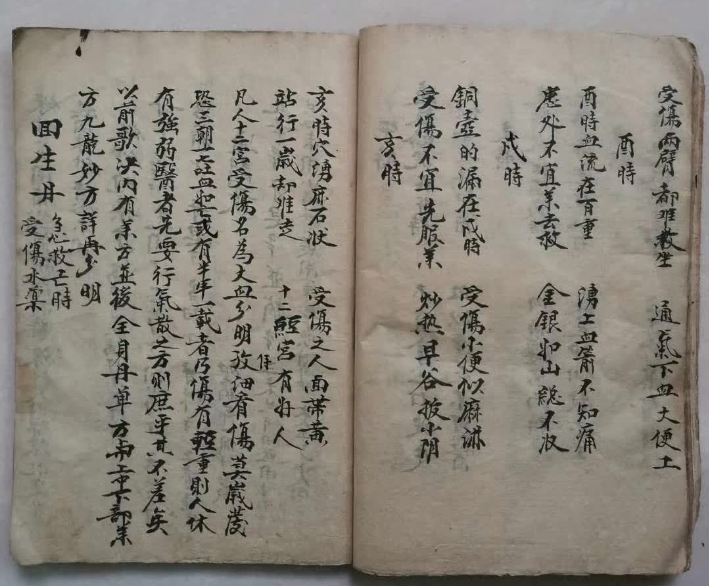 受傷兩臂都难救坐 通氣下血大便土
酉時
酉時血流在百重 湧上血箭不知痛
應处不宜某去救 金銀如山總不收
戍時
銅壺的漏在戍時 受傷小便似麻淋
受傷不宜先服某 炒热早谷扳小阴
亥時
亥時穴湧麻石状 受傷之人面帶黄
站行一歲却难走 十二經宮有好人
凡人十二宮受傷名為丈血分明孜仔細有傷莫歲茂
恐三朝一七註血如亡或有半年一載者乃傷有輕重則人休
有強弱醫者先要行氣散之方則庶乎其不差矣
以前歌决内有某方並後全身丹单方两上中下部某
方九龍妙方詳再分明
回生丹 急救亡時
受傷水藥